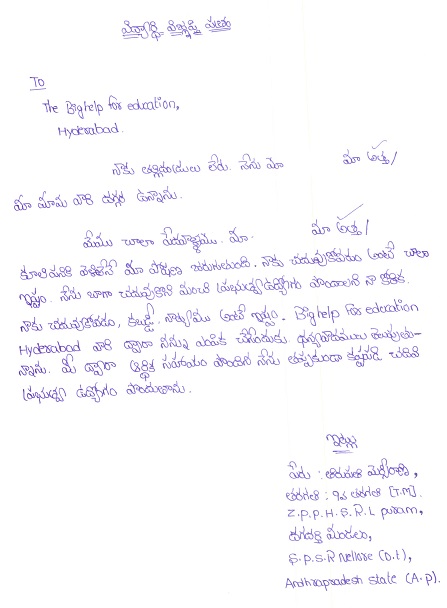 విద్యార్థి విజ్ఞప్తి పత్రం
To
The Big help for education,
Hyderabad.
నాకు తల్లిదండ్రులు లేరు. నేను మా మా అత్త/
మా మామ వారి దగ్గర ఉన్నాను.
మేము చాలా పేదవాళ్ళము. మా మా అత్త/
కూలిపనికి వెళ్తేనే మా పోషణ జరుగుతుంది. నాకు చదువుకోవడం అంటే చాలా
ఇష్టం. నేను బాగా చదువుకొని మంచి ప్రభుత్వ ఉద్యోగం పొందాలని నా కోరిక.
నాకు చదువుకోవడం, కబడ్డీ, నాట్యము అంటే ఇష్టం. Big help For education
Hyderabad వారి ద్వారా నన్ను ఎంపిక చేసినందుకు ధన్యవాదములు తెలుపుతు-
న్నాను. మీ ద్వారా ఆర్థిక సహాయం పొందిన నేను తప్పకుండా కష్టపడి చదివి
ప్రభుత్వ ఉద్యోగం పొందుతాను.
ఇట్లు
పేరు : తిరుపతి మల్లీశ్వరి,
తరగతి : 9వ తరగతి [T.M].
Z.P.P.H.S. R.L puram,
దగదర్తి మండలం,
S.P.S.R Nellore (D.t),
Andhrapradesh state (A.p).